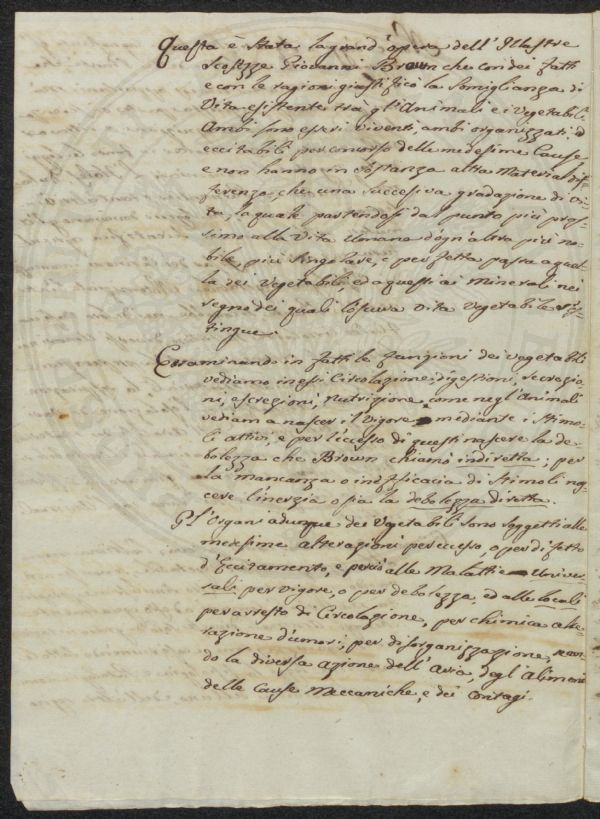 Questa è stata la grand'opera dell'Illustre
Scozzze Giovanni Brown che con dei fatti
e con le ragioni giustificò la Somiglianza di
Vita esistente tra gl'Animali e i Vegetabili.
Ambi sono esseri viventi, ambi organizzati, ed
eccitabili per concorso delle medesime Cause,
e non hanno in sostanza altra Material dif=
ferenza, che una successiva gradazione di Vi=
ta, la quale partendosi da punto più pros=
simo alla Vita Umana d'ogn'altra più no=
bile, più singolare, e perfetta passa a quel=
la dei Vegetabili, ed a questi ai Minerali nel
regno dei quali l'oscura Vita Vegetabile s'es=
tingue.
Essaminando in fatti le funzioni dei Vegetabili
vediamo in essi Circolazione, digestioni, secrezio=
ni, escrezioni, Nutrizione, come negl'Animali
vediam a nascer il Vigore mediante i Stimo=
li attivi, e per l'eccesso di questi nascere la de=
bolezza che Brown chiamò indiretta; per
la mancanza o inefficacia di Stimoli na=
scere l'inerzia o sia la debolezza diretta.
Gl'Organi adunque dei Vegetabili sono soggetti alle
medesime alterazioni per eccesso, o per difetto
d'Eccitamento, e perciò alle Malattie Univer=
sali per vigore, o per debolezza, ed alle locali
per arresto di Circolazione, per chimica alte=
razione d'umori, per disorganizzazione, secon=
do la diversa azione dell'Aria, degl'Alimenti
delle Cause Meccaniche, e dei Contagi.